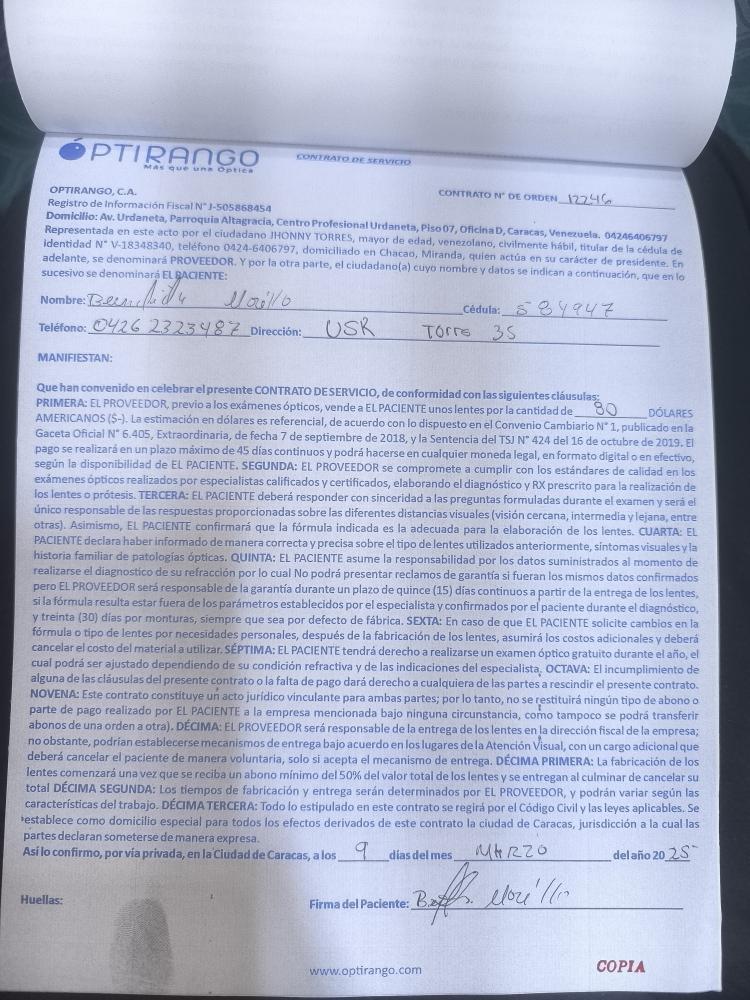 OPTIRANGO
Más que una Optica
CONTRATO DE SERVICIO
OPTIRANGO, C.A.
CONTRATO N° DE ORDEN 12246
Registro de Información Fiscal N° J-505868454
Domicilio: Av. Urdaneta, Parroquia Altagracia, Centro Profesional Urdaneta, Piso 07, Oficina D, Caracas, Venezuela. 04246406797
Representada en este acto por el ciudadano JHONNY TORRES, mayor de edad, venezolano, civilmente hábil, titular de la cédula de
identidad N° V-18348340, teléfono 0424-6406797, domiciliado en Chacao, Miranda, quien actúa en su carácter de presidente. En
adelante, se denominará PROVEEDOR. Y por la otra parte, el ciudadano(a) cuyo nombre y datos se indican a continuación, que en lo
sucesivo se denominará EL PACIENTE:
Nombre: Morillo Cédula: 584947
Teléfono: 0426 2323487 Dirección: USR Torre 35
MANIFIESTAN:
Que han convenido en celebrar el presente CONTRATO DE SERVICIO, de conformidad con las siguientes cláusulas:
PRIMERA: EL PROVEEDOR, previo a los exámenes ópticos, vende a EL PACIENTE unos lentes por la cantidad de 80 DÓLARES
AMERICANOS ($-). La estimación en dólares es referencial, de acuerdo con lo dispuesto en el Convenio Cambiario N° 1, publicado en la
Gaceta Oficial N° 6.405, Extraordinaria, de fecha 7 de septiembre de 2018, y la Sentencia del TSJ N° 424 del 16 de octubre de 2019. El
pago se realizará en un plazo máximo de 45 días continuos y podrá hacerse en cualquier moneda legal, en formato digital o en efectivo,
según la disponibilidad de EL PACIENTE. SEGUNDA: EL PROVEEDOR se compromete a cumplir con los estándares de calidad en los
exámenes ópticos realizados por especialistas calificados y certificados, elaborando el diagnóstico y RX prescrito para la realización de
los lentes o prótesis. TERCERA: EL PACIENTE deberá responder con sinceridad a las preguntas formuladas durante el examen y será el
único responsable de las respuestas proporcionadas sobre las diferentes distancias visuales (visión cercana, intermedia y lejana, entre
otras). Asimismo, EL PACIENTE confirmará que la fórmula indicada es la adecuada para la elaboración de los lentes. CUARTA: EL
PACIENTE declara haber informado de manera correcta y precisa sobre el tipo de lentes utilizados anteriormente, síntomas visuales y la
historia familiar de patologías ópticas. QUINTA: EL PACIENTE asume la responsabilidad por los datos suministrados al momento de
realizarse el diagnostico de su refracción por lo cual No podrá presentar reclamos de garantía si fueran los mismos datos confirmados
pero EL PROVEEDOR será responsable de la garantía durante un plazo de quince (15) días continuos a partir de la entrega de los lentes,
si la fórmula resulta estar fuera de los parámetros establecidos por el especialista y confirmados por el paciente durante el diagnóstico,
y treinta (30) días por monturas, siempre que sea por defecto de fábrica. SEXTA: En caso de que EL PACIENTE solicite cambios en la
fórmula o tipo de lentes por necesidades personales, después de la fabricación de los lentes, asumirá los costos adicionales y deberá
cancelar el costo del material a utilizar. SÉPTIMA: EL PACIENTE tendrá derecho a realizarse un examen óptico gratuito durante el año, el
cual podrá ser ajustado dependiendo de su condición refractiva y de las indicaciones del especialista. OCTAVA: El incumplimiento de
alguna de las cláusulas del presente contrato o la falta de pago dará derecho a cualquiera de las partes a rescindir el presente contrato.
NOVENA: Este contrato constituye un acto jurídico vinculante para ambas partes; por lo tanto, no se restituirá ningún tipo de abono o
parte de pago realizado por EL PACIENTE a la empresa mencionada bajo ninguna circunstancia, como tampoco se podrá transferir
abonos de una orden a otra). DÉCIMA: EL PROVEEDOR será responsable de la entrega de los lentes en la dirección fiscal de la empresa;
no obstante, podrían establecerse mecanismos de entrega bajo acuerdo en los lugares de la Atención Visual, con un cargo adicional que
deberá cancelar el paciente de manera voluntaria, solo si acepta el mecanismo de entrega. DÉCIMA PRIMERA: La fabricación de los
lentes comenzará una vez que se reciba un abono mínimo del 50% del valor total de los lentes y se entregan al culminar de cancelar su
total DÉCIMA SEGUNDA: Los tiempos de fabricación y entrega serán determinados por EL PROVEEDOR, y podrán variar según las
características del trabajo. DÉCIMA TERCERA: Todo lo estipulado en este contrato se regirá por el Código Civil y las leyes aplicables. Se
establece como domicilio especial para todos los efectos derivados de este contrato la ciudad de Caracas, jurisdicción a la cual las
partes declaran someterse de manera expresa.
Así lo confirmo, por vía privada, en la Ciudad de Caracas, a los 9 días del mes MARZO del año 2025
Huellas:
Firma del Paciente: Morillo
www.optirango.com
COPIA